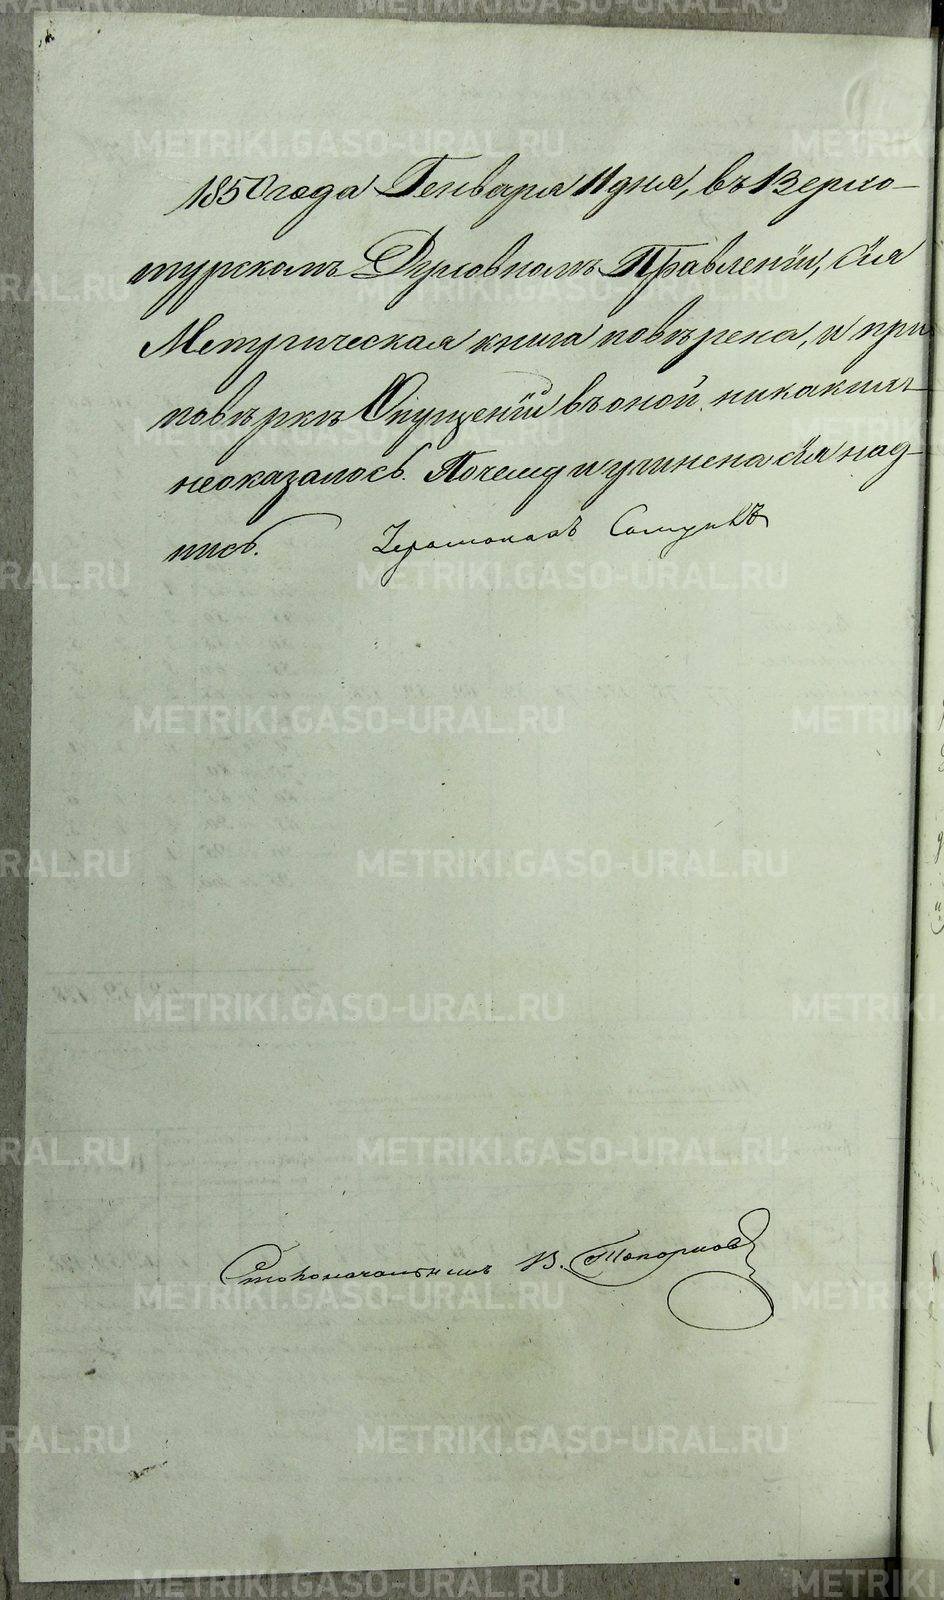 1850 года Генваря 11 дня, въ Верхо-
турскомъ Духовномъ Правленіи, сія
Метрическая книга повѣрена, и при
повѣркѣ Опущеній въ оной никакихъ
неоказалось. Почему и учинена сія над-
пись. Іеромонахъ
Столоначальникъ В. Топорковъ
METRIKI.GASO-URAL.RU